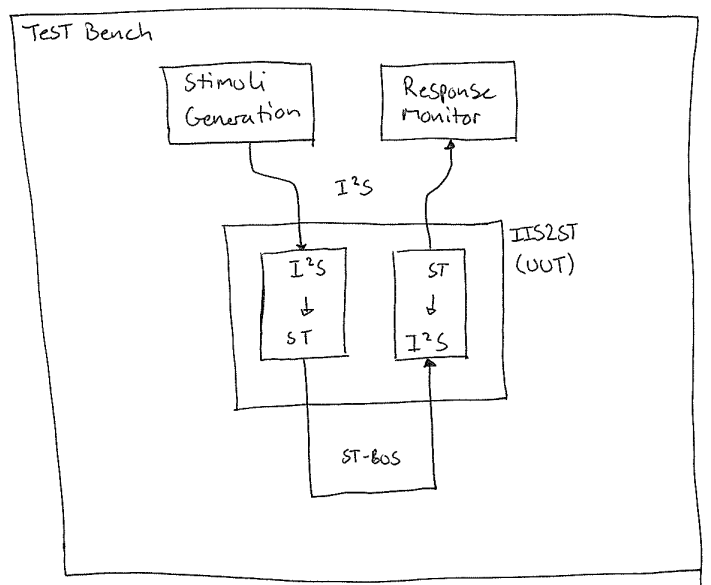 Test Bench
Stimuli
Generation
Response
Monitor
I²S
IIS2ST
(UUT)
I²S
↓
ST
ST
↓
I²S
ST-BUS